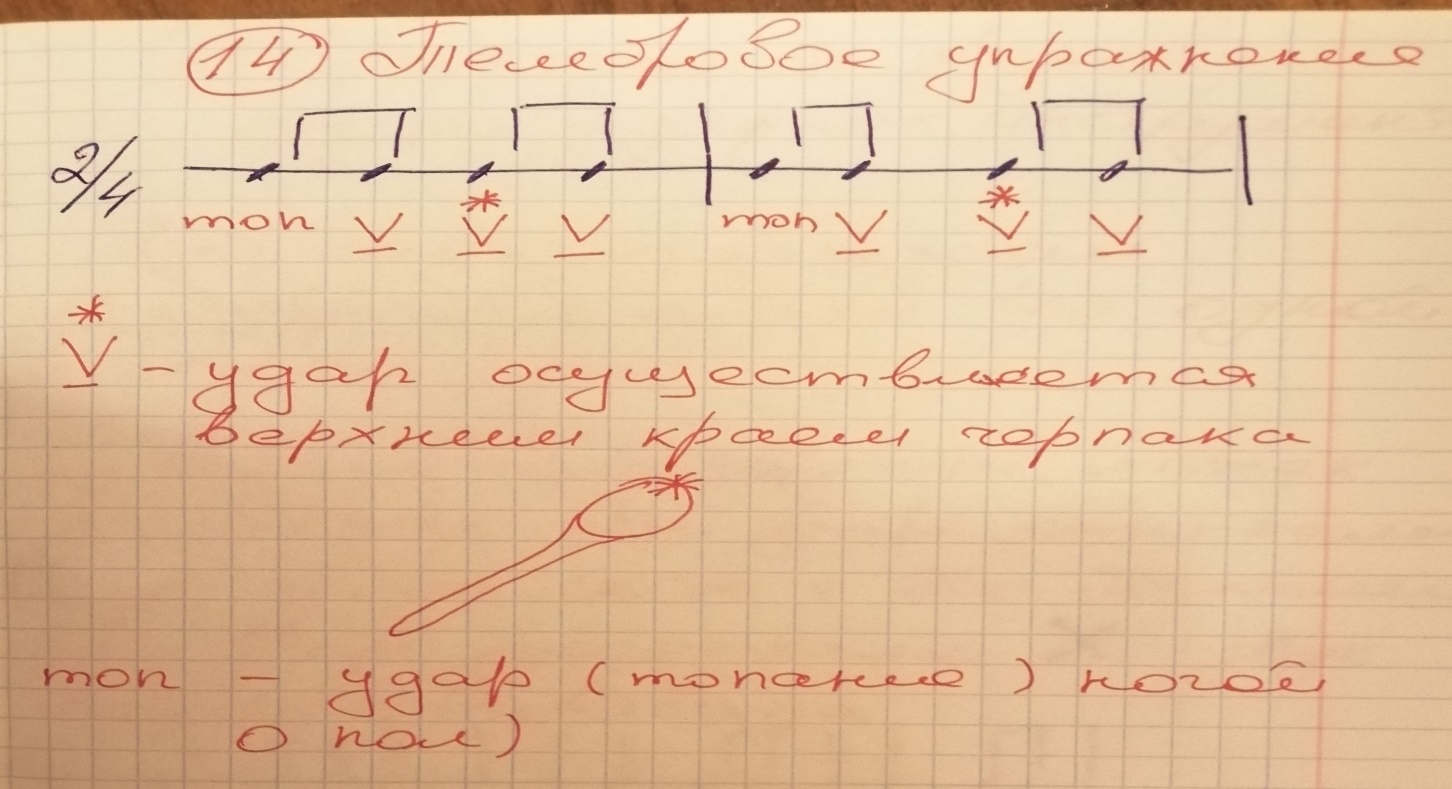 14 Тембровое упражнение
2/4
топ V V* V топ V V* V
V* - удар осуществляется
верхним краем черпака
топ - удар (топание) ногой
о пол)